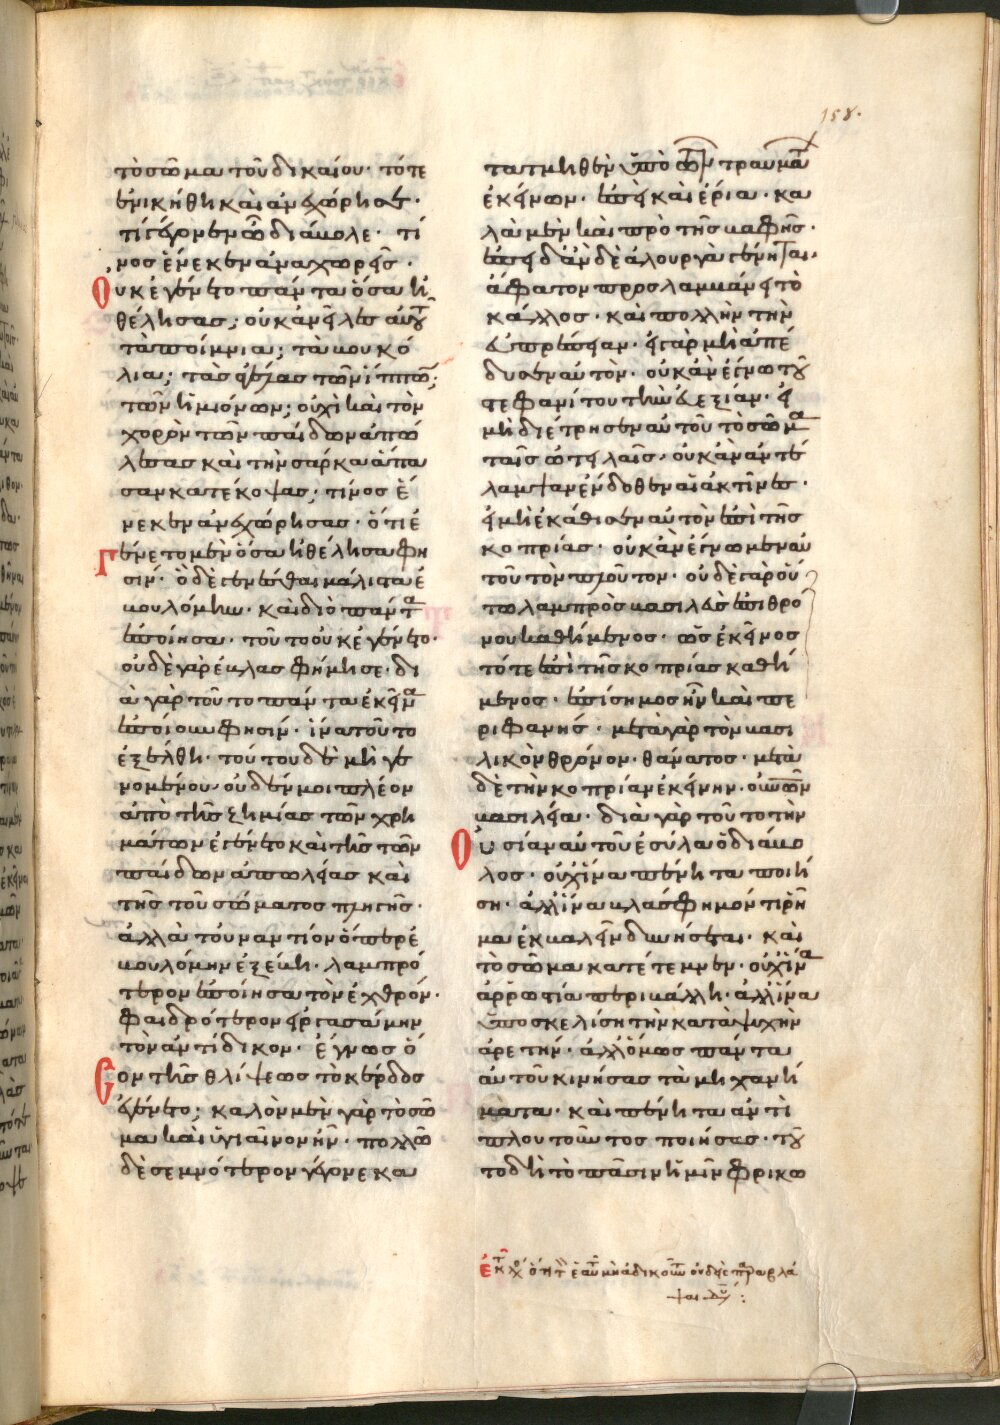 158.
τὸ σῶμα τοῦ δικαίου· τότε
ἐνικήθη καὶ ἀνεχώρησε·
τί γέγονεν ὦ διάβολε· τί
νος ἕνεκεν ἀναχωρεῖς·
Οὐκ ἐγένετο πάντα ὅσα ἠ
θέλησας; οὐκ ἀνεῖλες αὐτοῦ
τὰ ποίμνια; τὰ βουκό
λια; τὰς ἀγέλας τῶν ἵππων;
τῶν ἡμιόνων; οὐχὶ καὶ τὸν
χορὸν τῶν παίδων ἀπώ
λεσας καὶ τὴν σάρκα ἅπα
σαν κατέκοψας; τίνος ἕ
νεκεν ἀνεχώρησας· ὅτι ἐ
Γένετο μὲν ὅσα ἠθέλησα φη
σίν· ὃ δὲ γενέσθαι μάλιστα ἐ
βουλόμην· καὶ διὸ πάντα
ἐποίησα· τοῦτο οὐκ ἐγένετο·
οὐδὲ γὰρ ἐβλασφήμησε· δι
ὰ γὰρ τοῦτο πάντα ἐκεῖνα
ἐποίουν φησίν· ἵνα τοῦτο
ἐξέλθη· τούτου δὲ μὴ γε
νομένου· οὐδέν μοι πλέον
ἀπὸ τῆς ζημίας τῶν χρη
μάτων ἐγένετο καὶ τῆς τῶν
παίδων ἀπωλείας καὶ
τῆς τοῦ σώματος πληγῆς·
ἀλλὰ τοὐναντίον ὅπερ ἐ
βουλόμην ἐξέβη· λαμπρό
τερον ἐποίησα τὸν ἐχθρόν·
φαιδρότερον εἰργασάμην
τὸν ἀντίδικον· ἔγνως ὅ
Σον τῆς θλίψεως τὸ κέρδος
ἐγένετο; καλὸν μὲν γὰρ τὸ σῶ
μα καὶ ὑγιαῖνον ἦν· πολλῶ
δὲ σεμνότερον γέγονε κα
τατμηθὲν ὑπὸ τῶν τραυμάτων
ἐκείνων· ἐπεὶ καὶ ἔρια· κα
λὰ μὲν καὶ πρὸ τῆς βαφῆς·
ἐπειδὰν δὲ ἁλουργὰ γένηται·
ἄφατον προσλαμβάνει τὸ
κάλλος· καὶ πολλὴν τὴν
εὐπρέπειαν· εἰ γὰρ μὴ ἀπέ
δυσεν αὐτόν· οὐκ ἂν ἔγνω τοῦ
στεφανίτου τὴν εὐεξίαν· εἰ
μὴ διέτρησεν αὐτοῦ τὸ σῶμα
ταῖς ὠτειλαῖς· οὐκ ἂν ἀντέ
λαμψαν ἔνδοθεν αἱ ἀκτῖνες·
εἰ μὴ ἐκάθισεν αὐτὸν ἐπὶ τῆς
κοπρίας· οὐκ ἂν ἔγνωμεν αὐ
τοῦ τὸν πλοῦτον· οὐδὲ γὰρ οὕ
τω λαμπρὸς βασιλεὺς ἐπὶ θρό
νου καθήμενος· ὡς ἐκεῖνος
τότε ἐπὶ τῆς κοπρίας καθή
μενος· ἐπίσημος ἦν καὶ πε
ριφανής· μετὰ γὰρ τὸν βασι
λικὸν θρόνον· θάνατος· μετὰ
δὲ τὴν κοπρίαν ἐκείνην· οὐρανῶν
βασιλεία· διὰ γὰρ τοῦτο τὴν
Οὐσίαν αὐτοῦ ἐσύλα ὁ διάβο
λος· οὐχ ἵνα πένητα ποιή
ση· ἀλλ' ἵνα βλάσφημόν τι ῥῆ
μα ἐκβαλεῖν διηγήσηται· καὶ
τὸ σῶμα κατέτεμνεν· οὐχ ἵνα
ἀρρωστία περιβάλλη· ἀλλ' ἵνα
ὑποσκελίση τὴν κατὰ ψυχὴν
ἀρετήν· ἀλλ' ὅμως πάντα
αὐτοῦ κινήσας τὰ μηχανή
ματα· καὶ πένητα ἀντὶ
πλουτοῦντος ποιήσας· τοῦ
το δὴ τὸ πᾶσιν ἡμῖν φρικω
ἐὰν μὴ ἀδικοῦντα οὐδεὶς παραβλά
ψαι